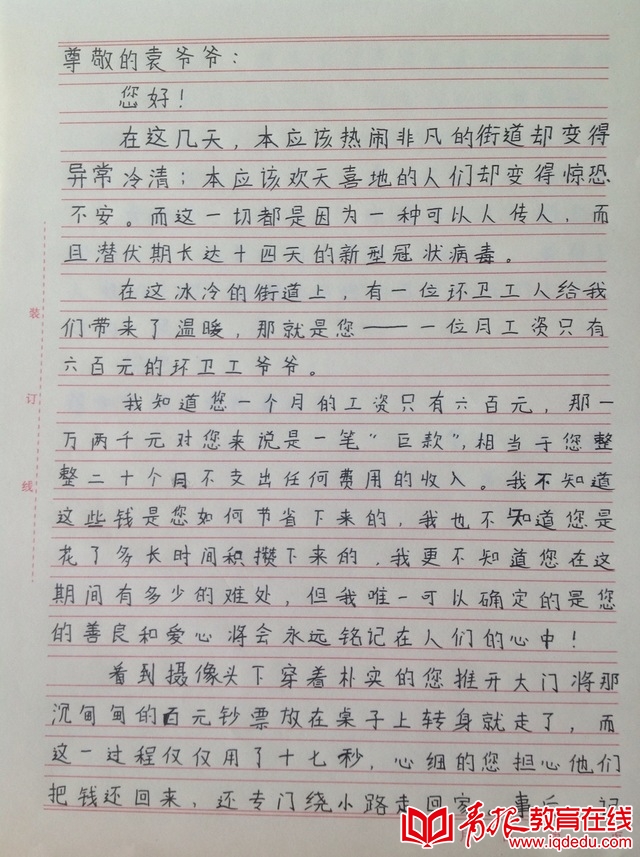 尊敬的袁爷爷：
您好！
在这几天，本应该热闹非凡的街道却变得
异常冷清；本应该欢天喜地的人们却变得惊恐
不安。而这一切都是因为一种可以人传人，而
且潜伏期长达十四天的新型冠状病毒。
在这冰冷的街道上，有一位环卫工人给我
们带来了温暖，那就是您——一位月工资只有
六百元的环卫工爷爷。
我知道您一个月的工资只有六百元，那一
万两千元对您来说是一笔“巨款”，相当于您整
整二十个月不支出任何费用的收入。我不知道
这些钱是您如何节省下来的，我也不知道您是
花了多长时间积攒下来的，我更不知道您在这
期间有多少的难处，但我唯一可以确定的是您
的善良和爱心将会永远铭记在人们的心中！
看到摄像头下穿着朴实的您推开大门将那
沉甸甸的百元钞票放在桌子上转身就走了，而
这一过程仅仅用了十七秒，心细的您担心他们
把钱还回来，还专门绕小路走回家。事后，记
装
订
线
青报教育在线
www.iqdedu.com